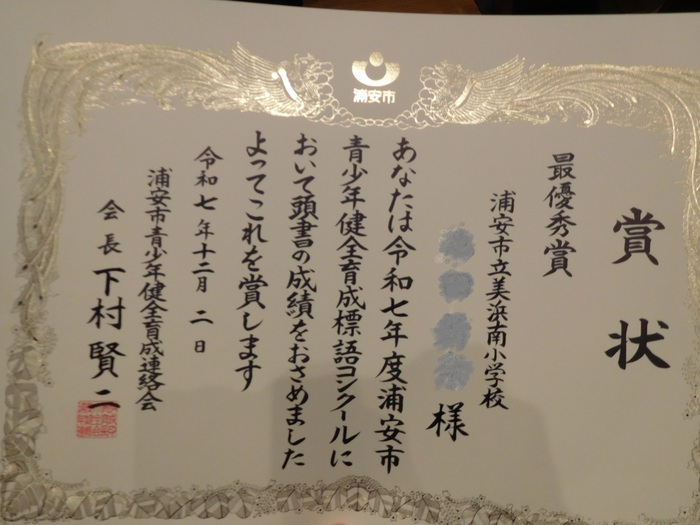 浦安市
賞状
最優秀賞
浦安市立美浜南小学校
様
あなたは令和七年度浦安市
青少年健全育成標語コンクールに
おいて頭書の成績をおさめました
よってこれを賞します
令和七年十二月二日
浦安市青少年健全育成連絡会
会長下村賢二